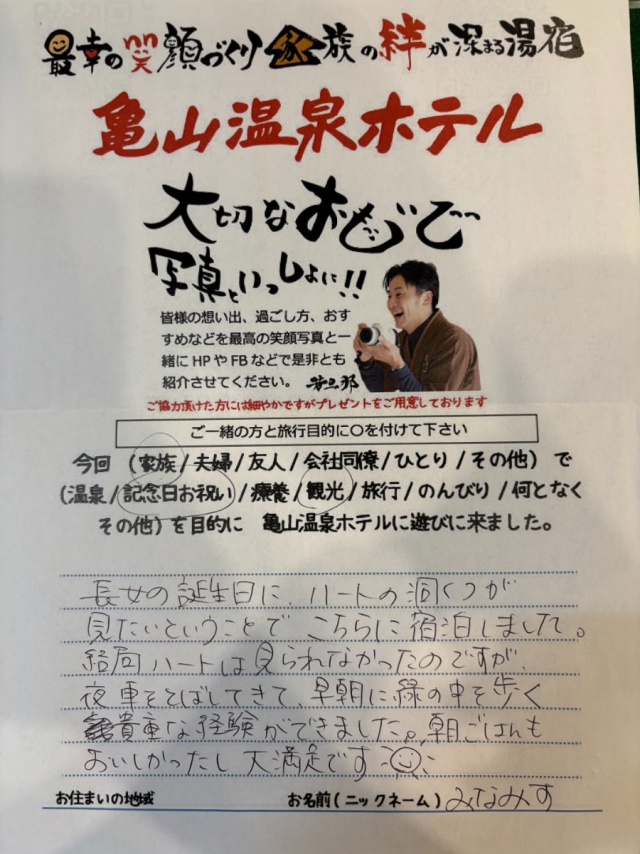 最幸の笑顔づくり家族の絆が深まる湯宿
亀山温泉ホテル
大切なおもいで
写真といっしょに!!
皆様の想い出、過ごし方、おす
すめなどを最高の笑顔写真と一
緒にHPやFBなどで是非とも
紹介させてください。 若旦那
ご協力頂けた方には細やかですがプレゼントをご用意しております
ご一緒の方と旅行目的に〇を付けて下さい
今回 (家族/夫婦/友人/会社同僚/ひとり/その他) で
(温泉/記念日お祝い/療養/観光/旅行/のんびり/何となく
その他) を目的に 亀山温泉ホテルに遊びに来ました。
長女の誕生日に、ハートの洞くつが
見たいということで こちらに宿泊しました。
結局ハートは見られなかったのですが、
夜車をとばしてきて、早朝に緑の中を歩く
貴重な経験ができました。朝ごはんも
おいしかったし 大満足です
お住まいの地域 お名前(ニックネーム) みなみす